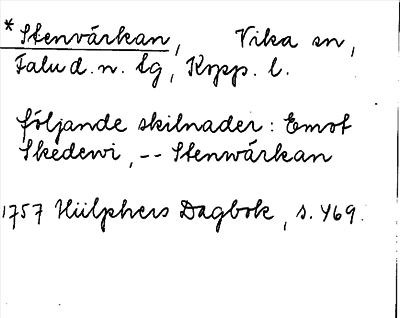 * Stenvärkan, Vika sn,
Falu d. n. lg, Kopp. l.
följande skilnader: Emot
Skedewi, -- Stenwärkan
1757 Hülphers Dagbok, s. 469.